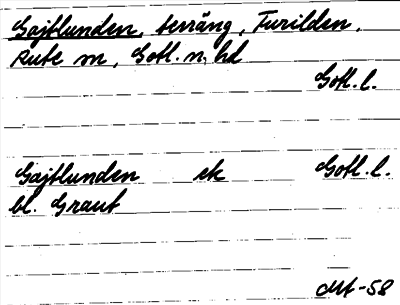 Gajtlunden, terräng, Furilden,
Rute sn, Gotl. n. hd
Gotl. l.
Gajtlunden ek Gotl. l.
bl. Graut